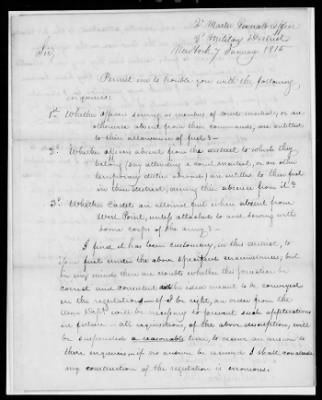 Qr Master Generals Office
3d Military District
New York 7 January 1815
Sir,
Permit me to trouble you with the following
inquiries:
1st Whether officers serving as members of courts martial, or are
otherwise absent from their commands, are entitled
to their allowances of fuel? —
2d Whether officers absent from the district to which they
belong (say attending a court martial, or on other
temporary duties abroad) are entitled to their fuel
in their district, during their absence from it?
3d Whether Cadets are allowed fuel when absent from
West Point, unless attached to and serving with
some corps of the army? —
I find it has been customary, in this district, to
issue fuel under the above specified circumstances, but
in my mind there are doubts whether the practice be
correct and consistent with the ideas meant to be conveyed
in the regulations — if I be right, an order from the
will be necessary to prevent such applications
in future — all requisitions, of the above description, will
be suspended a reasonable time, to receive an answer to
these inquiries — if no answer be received I shall conclude
my construction of the regulation is erroneous.